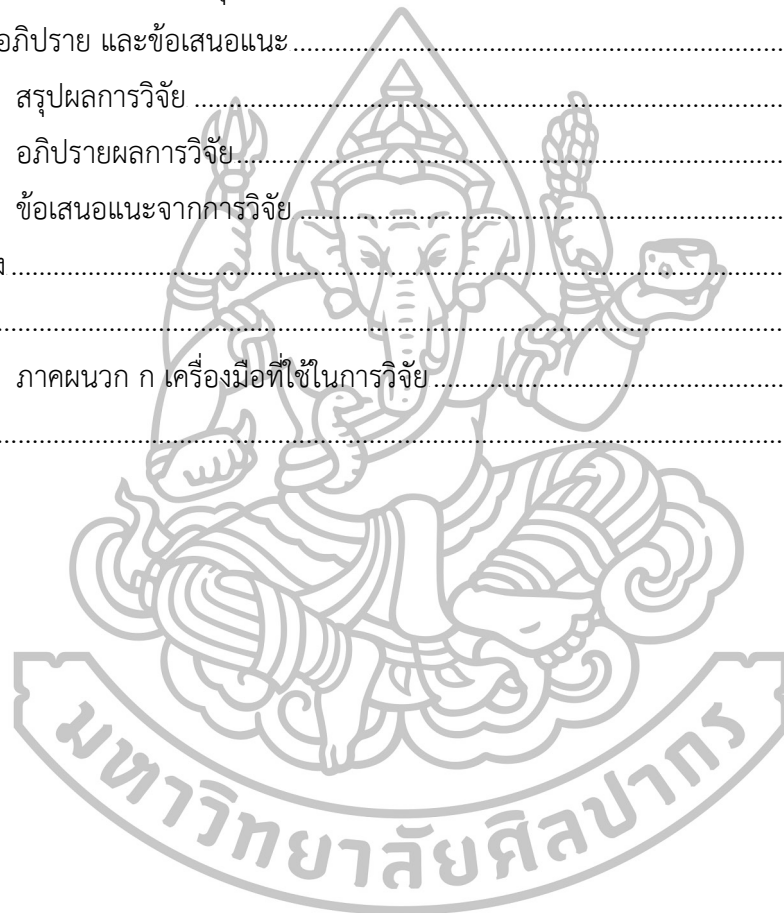 อภิปราย และข้อเสนอแนะ................................................................................
สรุปผลการวิจัย ................................................................................
อภิปรายผลการวิจัย................................................................................
ข้อเสนอแนะจากการวิจัย ................................................................................
................................................................................
................................................................................
ภาคผนวก ก เครื่องมือที่ใช้ในการวิจัย ................................................................................
................................................................................
มหาวิทยาลัยศิลปากร